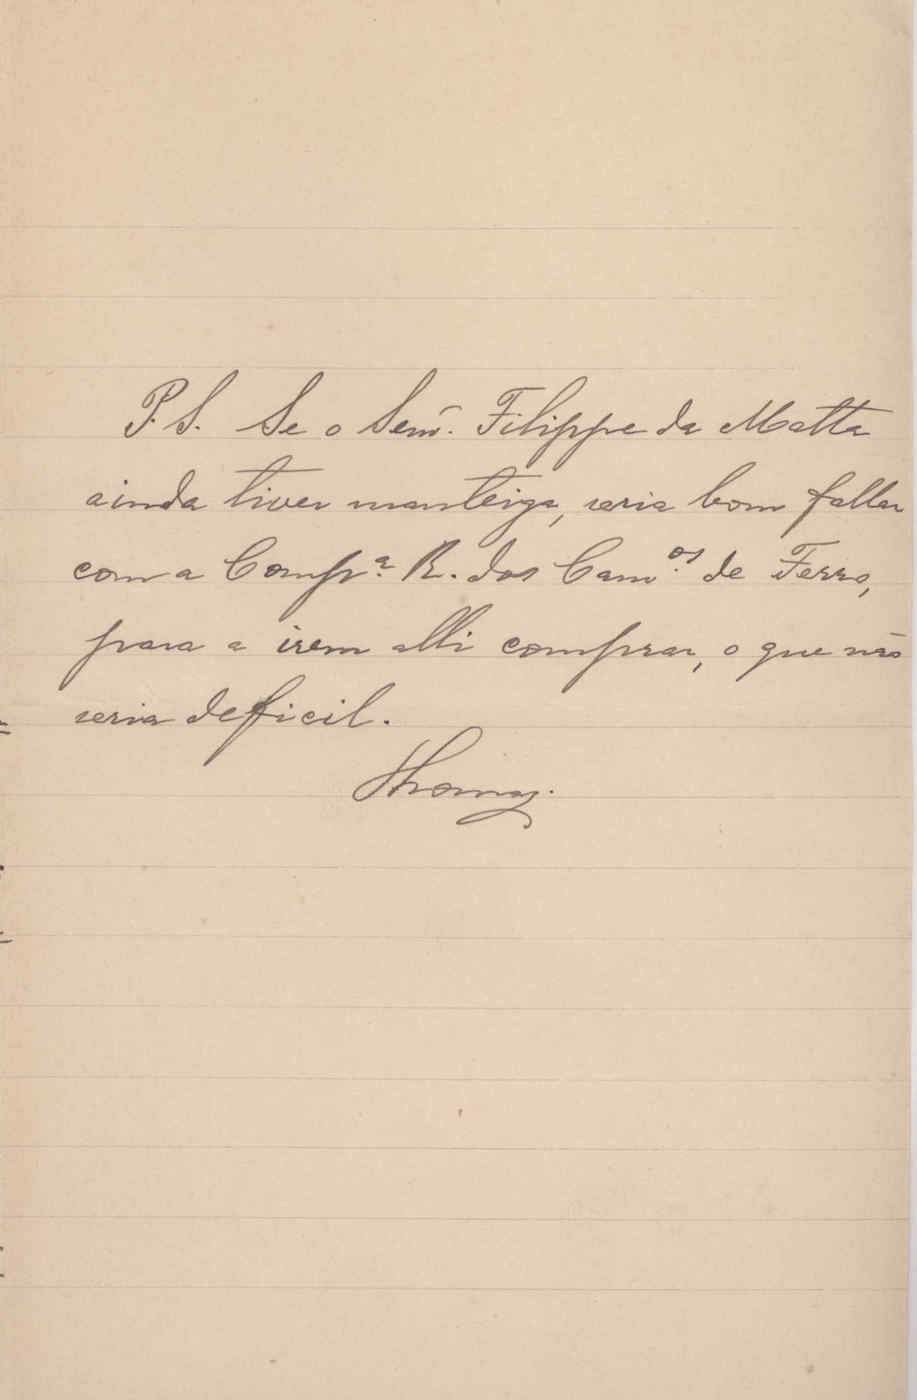 P.S. Se o Senr̃. Filippe da Matta
ainda tiver manteiga, seria bom fallar
com a Compª. R. dos Cam.ᵒˢ de Ferro,
para a irem alli comprar, o que não
seria deficil.
Thomaz.